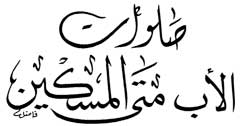 صلوات
الأب متى المسكين